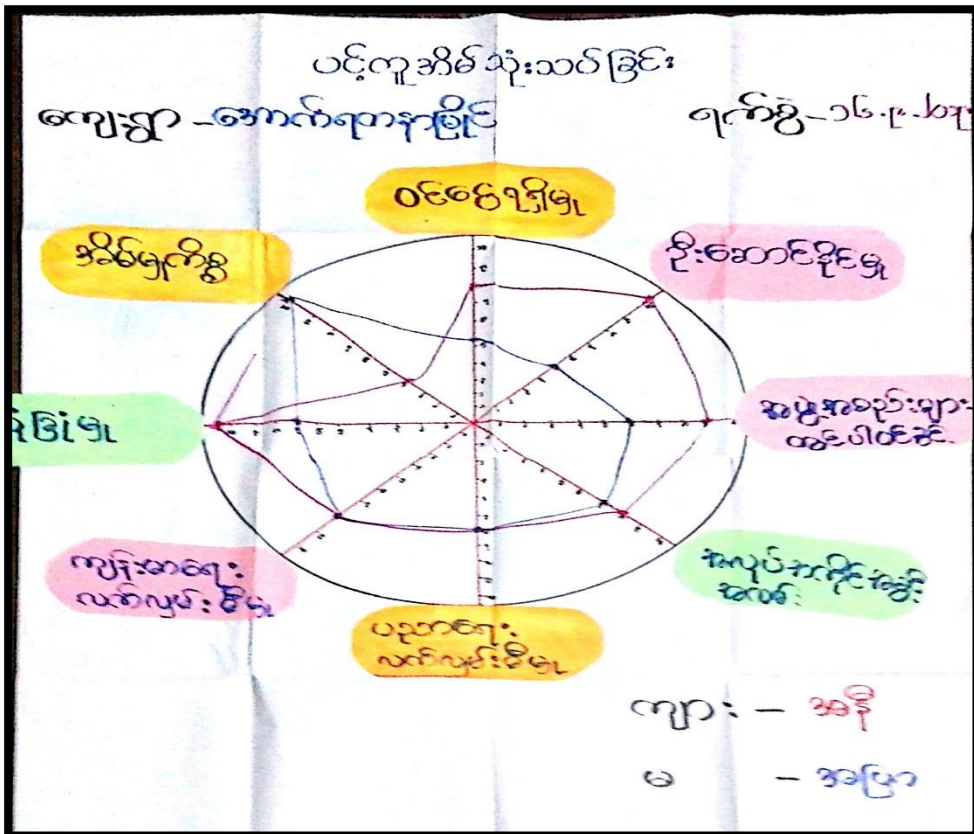 ပင့်ကူအိမ်သုံးသပ်ခြင်း
ကျေးရွာ - အောက်ရတနာမြိုင်
ရက်စွဲ - ၁၆.၉.၂၀၁
ဝင်ငွေရရှိမှု
အိမ်မှုကိစ္စ
ဦးဆောင်နိုင်မှု
ခြုံမှု
အဖွဲ့အစည်းများ
တွင်ပါဝင်ခြင်း
ကျန်းမာရေး
လက်လှမ်းမီမှု
အလုပ်အကိုင်အခွင့်
အလမ်း
ပညာရေး
လက်လှမ်းမီမှု
ကျား - အနီ
မ - အပြာ